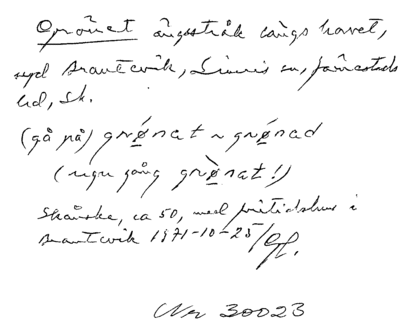 Grönet ängsstråk längs havet,
syd Brantevik, Simris sn, Järrestads
hd, Sk.
(gå på) grønat ~ grønad
(ngn gång grønat!)
Skånska, ca 50, med fritidshus i
Brantevik 1971-10-25/
Nr 30023